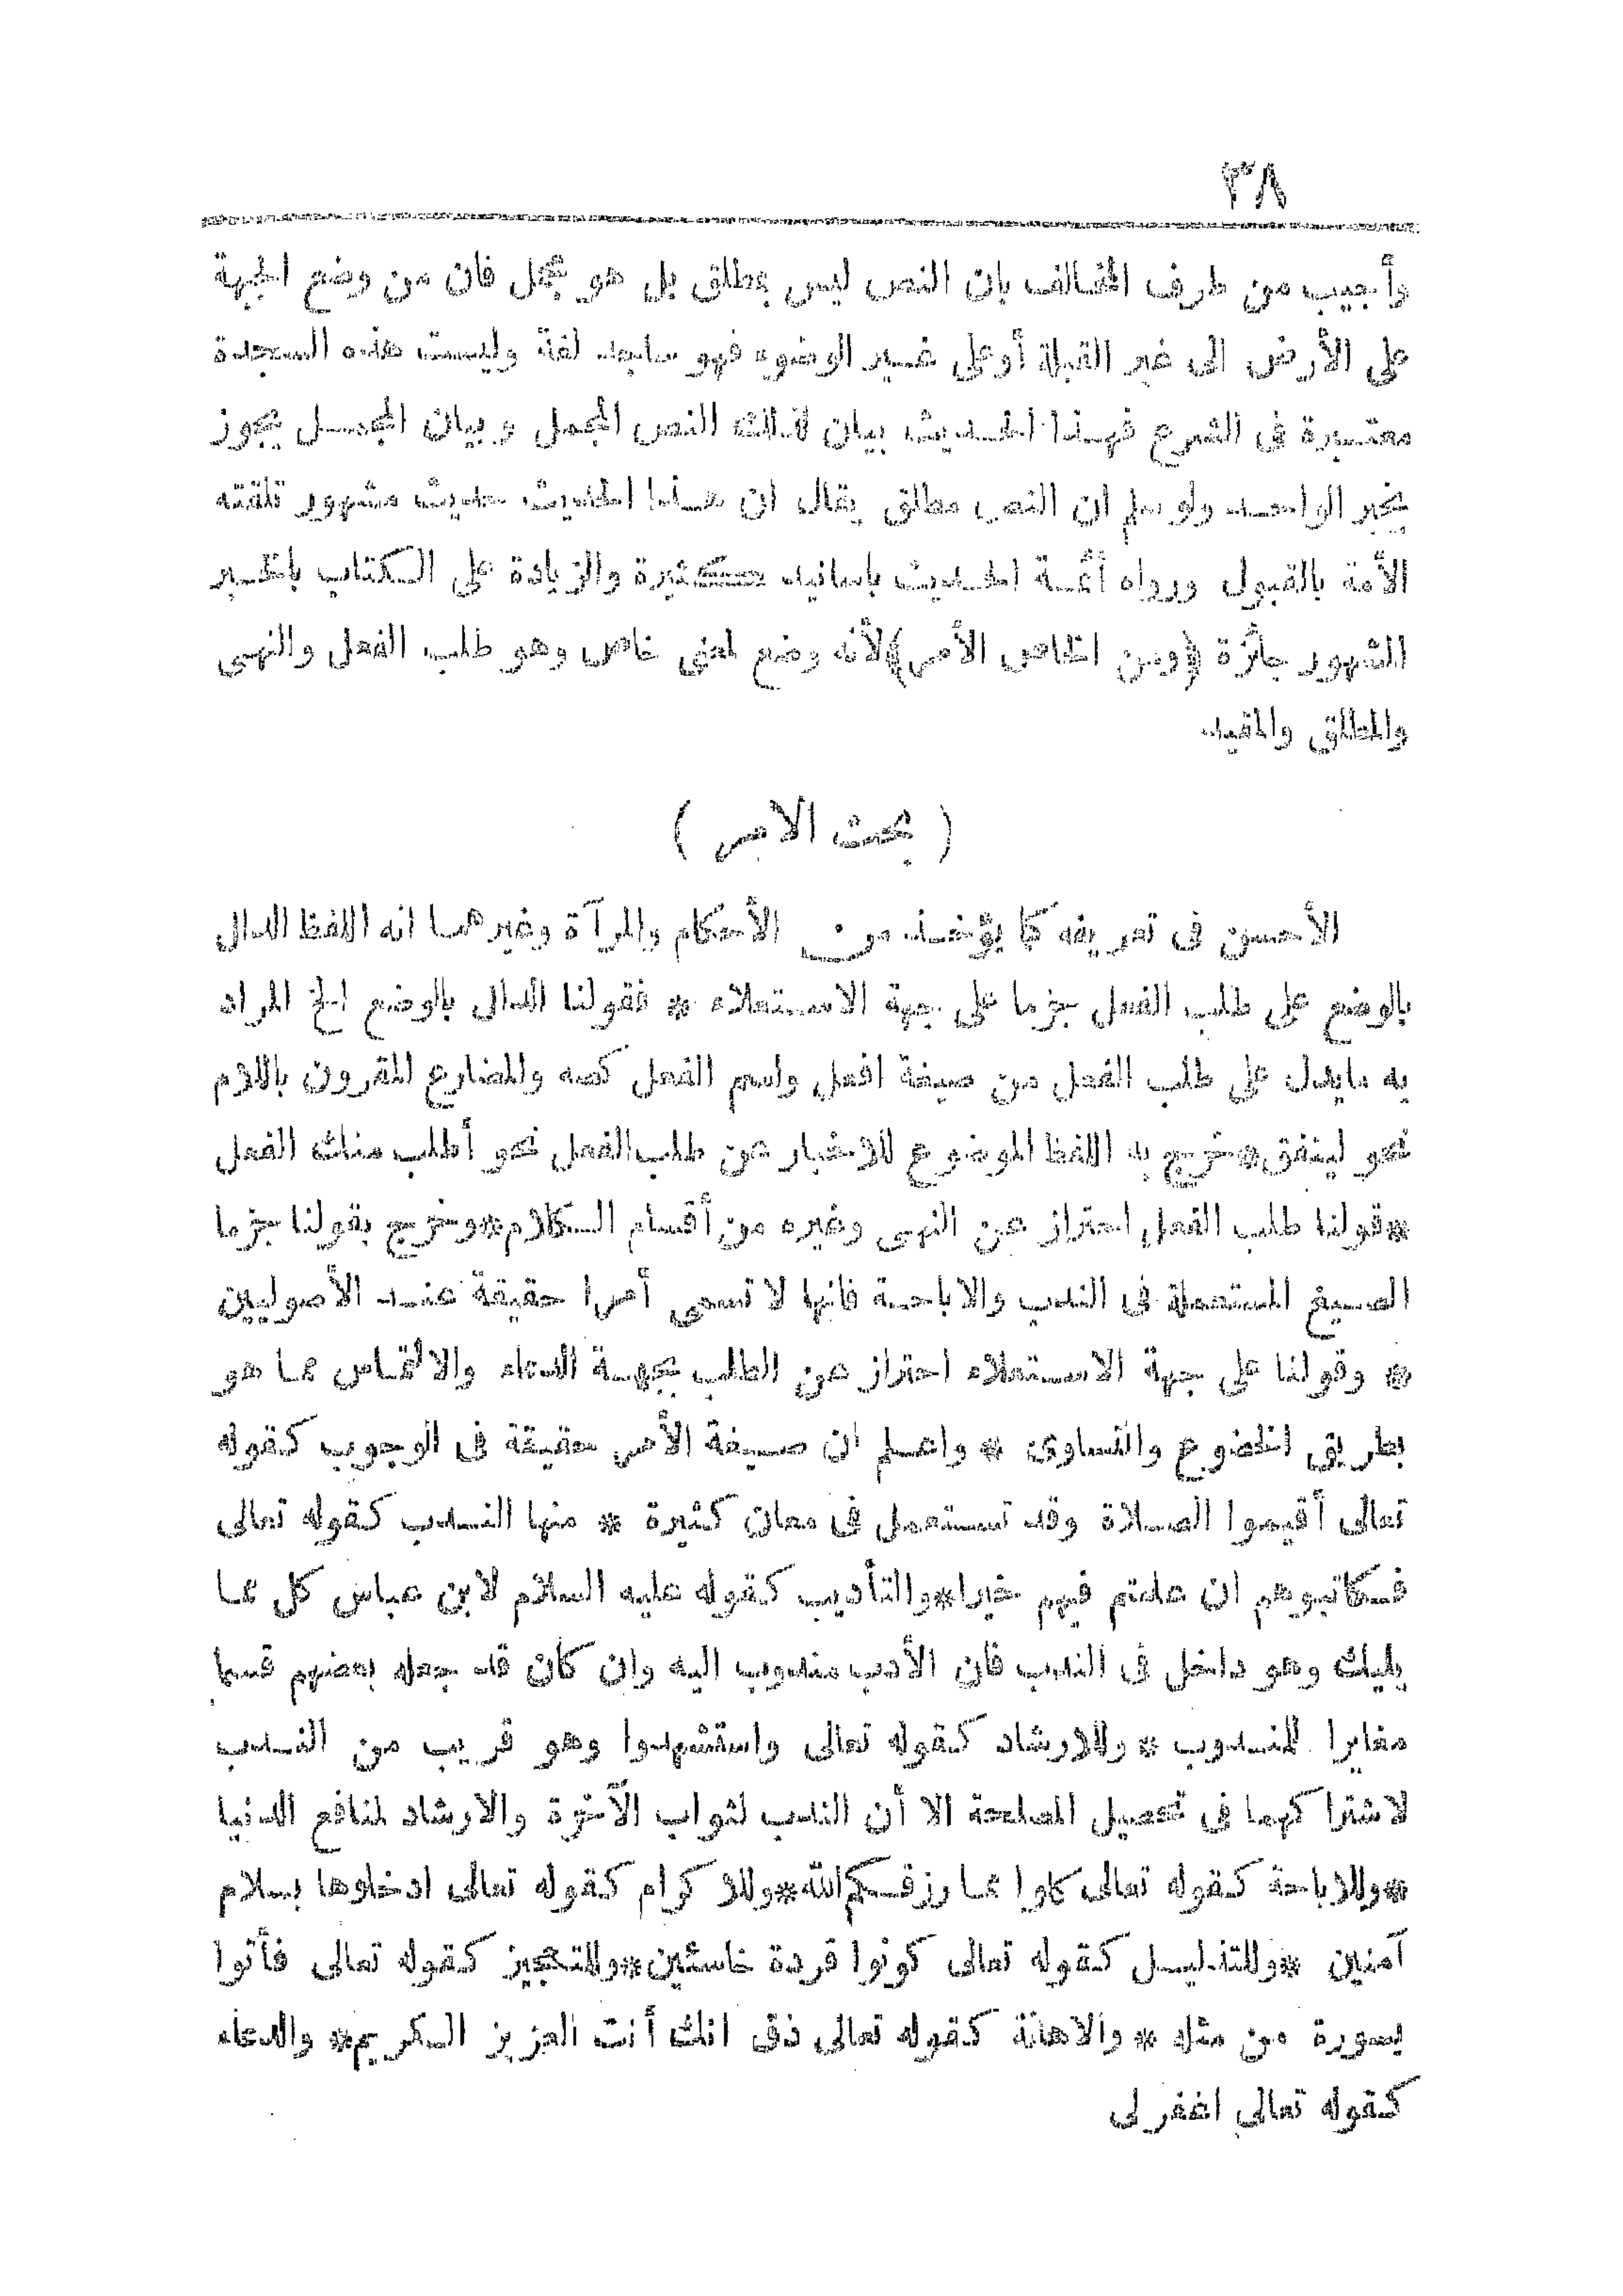 ٣٨
وأجيب من طرف المخالف بان النص ليس بمطلق بل هو مجمل فان من وضع الجبهة
على الأرض الى غير القبلة أو على غير الوضوء فهو ساجد لغة وليست هذه السجدة
معتبرة فى الشرع فهذا الحديث بيان لذلك النص المجمل وبيان المجمل يجوز
بخبر الواحد ولو سلم ان النص مطلق يقال ان هذا الحديث حديث مشهور تلقته
الأمة بالقبول ورواه أئمة الحديث باسانيد كثيرة والزيادة على الكتاب بالخبر
المشهور جائزة (ومن الخاص الأمر) لأنه وضع لمعنى خاص وهو طلب الفعل والنهى
والمطلق والمقيد
( بحث الامر )
الأحسن فى تعريفه كما يؤخذ من الأحكام والمرآة وغيرهما انه اللفظ الدال
بالوضع على طلب الفعل جزما على جهة الاستعلاء * فقولنا الدال بالوضع الخ المراد
به ما يدل على طلب الفعل من صيغة افعل واسم الفعل كصه والمضارع المقرون باللام
نحو لينفق * خرج به اللفظ الموضوع للاخبار عن طلب الفعل نحو أطلب منك الفعل
* قولنا طلب الفعل احتراز عن النهى وغيره من أقسام الكلام * وخرج بقولنا جزما
الصيغ المستعملة فى الندب والاباحة فانها لا تسمى أمرا حقيقة عند الأصوليين
* وقولنا على جهة الاستعلاء احتراز عن الطلب بجهة الدعاء والالتماس مما هو
بطريق الخضوع والتساوى * واعلم ان صيغة الأمر حقيقة فى الوجوب كقوله
تعالى أقيموا الصلاة وقد تستعمل فى معان كثيرة * منها الندب كقوله تعالى
فكاتبوهم ان علمتم فيهم خيرا * والتأديب كقوله عليه السلام لابن عباس كل مما
يليك وهو داخل فى الندب فان الأدب مندوب اليه وان كان قد جعله بعضهم قسما
مغايرا للمندوب * وللارشاد كقوله تعالى واستشهدوا وهو قريب من الندب
لاشتراكهما فى تحصيل المصلحة الا أن الندب لثواب الآخرة والارشاد لمنافع الدنيا
* وللاباحة كقوله تعالى كلوا مما رزقكم الله * وللاكرام كقوله تعالى ادخلوها بسلام
آمنين * وللتذليل كقوله تعالى كونوا قردة خاسئين * وللتعجيز كقوله تعالى فأتوا
بسورة من مثله * والاهانة كقوله تعالى ذق انك أنت العزيز الكريم * والدعاء
كقوله تعالى اغفر لى